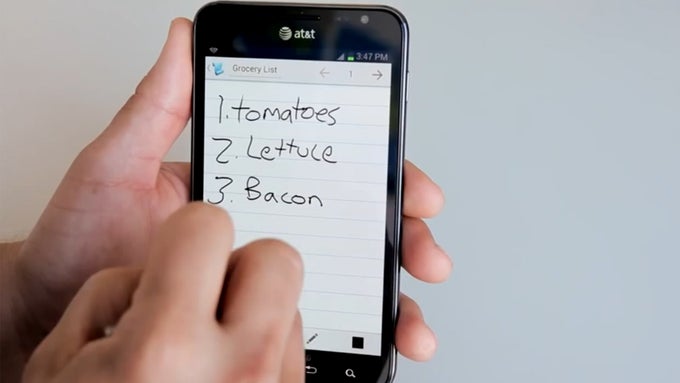 at&t
3:47 PM
Grocery List
1
1. tomatoes
2. Lettuce
3. Bacon